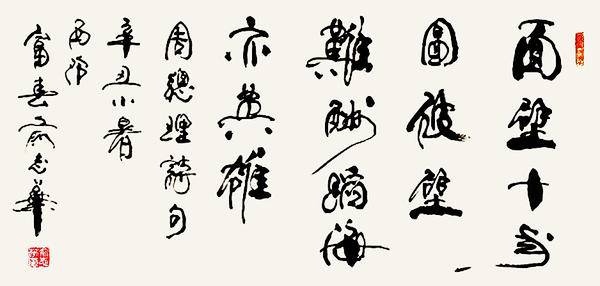 面壁十年
圖破壁
難酬蹈海
亦英雄
周總理詩句
辛丑小暑
富春俞志華